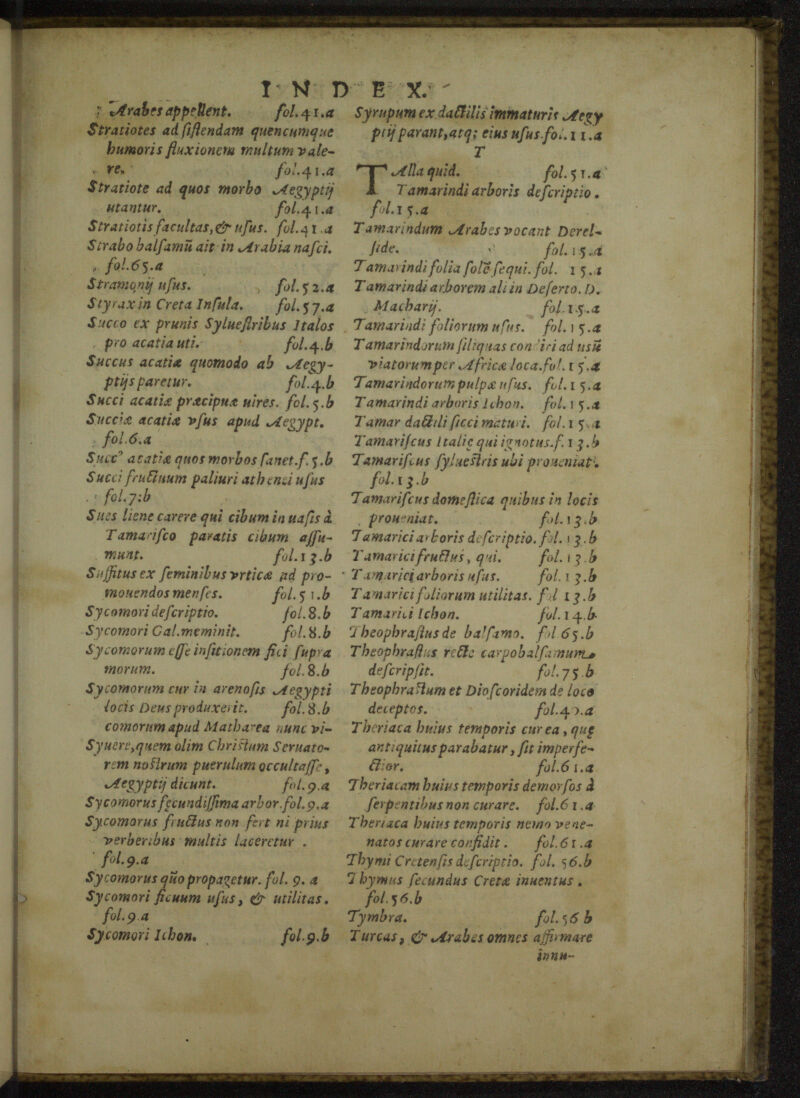 INDEX.
Arabes appellent. fol.41.a
Stratiotes ad sistendam quencumque
humoris fluxionem multum vale-
re. fol.41.a
Stratiote ad quos morbo Aegyptij
utantur. fol.41.a
Stratiotis facultas,& usus. fol.41.a
Strabo balsamū ait in Arabia nasci.
fol.65.a
Stramonij usus. fol.52.a
Styrax in Creta Insula. fol.57.a
Succo ex prunis Syluestribus Italos
pro acatia uti. fol.4.b
Succus acatiæ quomodo ab Aegy-
ptijs paretur. fol.4.b
Succi acatiæ præcipuæ uires. fol.5.b
Succiæ acatiæ vsus apud Aegypt.
fol.6.a
Succ⁹ acatiæ quos morbos sanet.f.5.b
Succi fructuum paliuri athenei usus
fol.7.b
Sues liene carere qui cibum in uasis à
Tamarisco paratis cibum assu-
munt. fol.13.b
Suffitus ex seminibus vrticæ ad pro-
mouendos menses. fol.51.b
Sycomori descriptio. fol.8.b
Sycomori Gal.meminit. fol.8.b
Sycomorum esse insitionem fici supra
morum. fol.8.b
Sycomorum cur in arenosis Aegypti
locis Deus produxerit. fol.8.b
comorum apud Matharea nunc vi-
Syuere,quem olim Christum Seruato-
rem nostrum puerulum occultasse,
Aegyptij dicunt. fol.9.a
Sycomorus fecundissima arbor.fol.9.a
Sycomorus fructus non fert ni prius
verberibus multis laceretur.
fol.9.a
Sycomorus quo propagetur. fol. 9. a
Sycomori ficuum usus, & utilitas.
fol.9.a
Sycomori Ichon. fol.9.b
Syrupum ex dactilis immaturis Aegy
ptij parant,atq; eius usus.fol.11.a
T
TAlla quid. fol.51.a
Tamarindi arboris descriptio.
fol.15.a
Tamarindum Arabes vocant Derel-
side. fol.15.a
Tamarindi folia solē sequi. fol. 15.a
Tamarindi arborem ali in Deserto. D.
Macharij. fol.15.a
Tamarindi foliorum usus. fol.15.a
Tamarindorum siliquas condiri ad usū
viatorum per Africæ loca.fol.15.a
Tamarindorum pulpæ usus. fol.15.a
Tamarindi arboris Ichon. fol.15.a
Tamar dactili sicci maturi. fol.15.a
Tamariscus Italiç qui ignotus.f.13.b
Tamariscus syluestris ubi proueniat.
fol.13.b
Tamariscus domestica quibus in locis
proueniat. fol.13.b
Tamarici arboris descriptio. fol.13.b
Tamarici fructus, qui. fol.13.b
Tamarici arboris usus. fol.13.b
Tamarici foliorum utilitas. fol 13.b
Tamarici Ichon. fol.14.b
Theophrastus de balsamo. fol 65.b
Theophrastus recte carpobalsamum
descripsit. fol.75.b
Theophrastum et Dioscoridem de loco
deceptos. fol.40.a
Theriaca huius temporis cur ea, que
antiquitus parabatur, sit imperfe-
ctior. fol.61.a
Theriacam huius temporis demorsos à
serpentibus non curare. fol.61.a
Theriaca huius temporis nemo vene-
natos curare confidit. fol.61.a
Thymi Cretensis descriptio. fol. 56.b
Thymus secundus Cretæ inuentus.
fol.56.b
Tymbra. fol.56 b
Turcas, & Arabes omnes affirmare
innu-